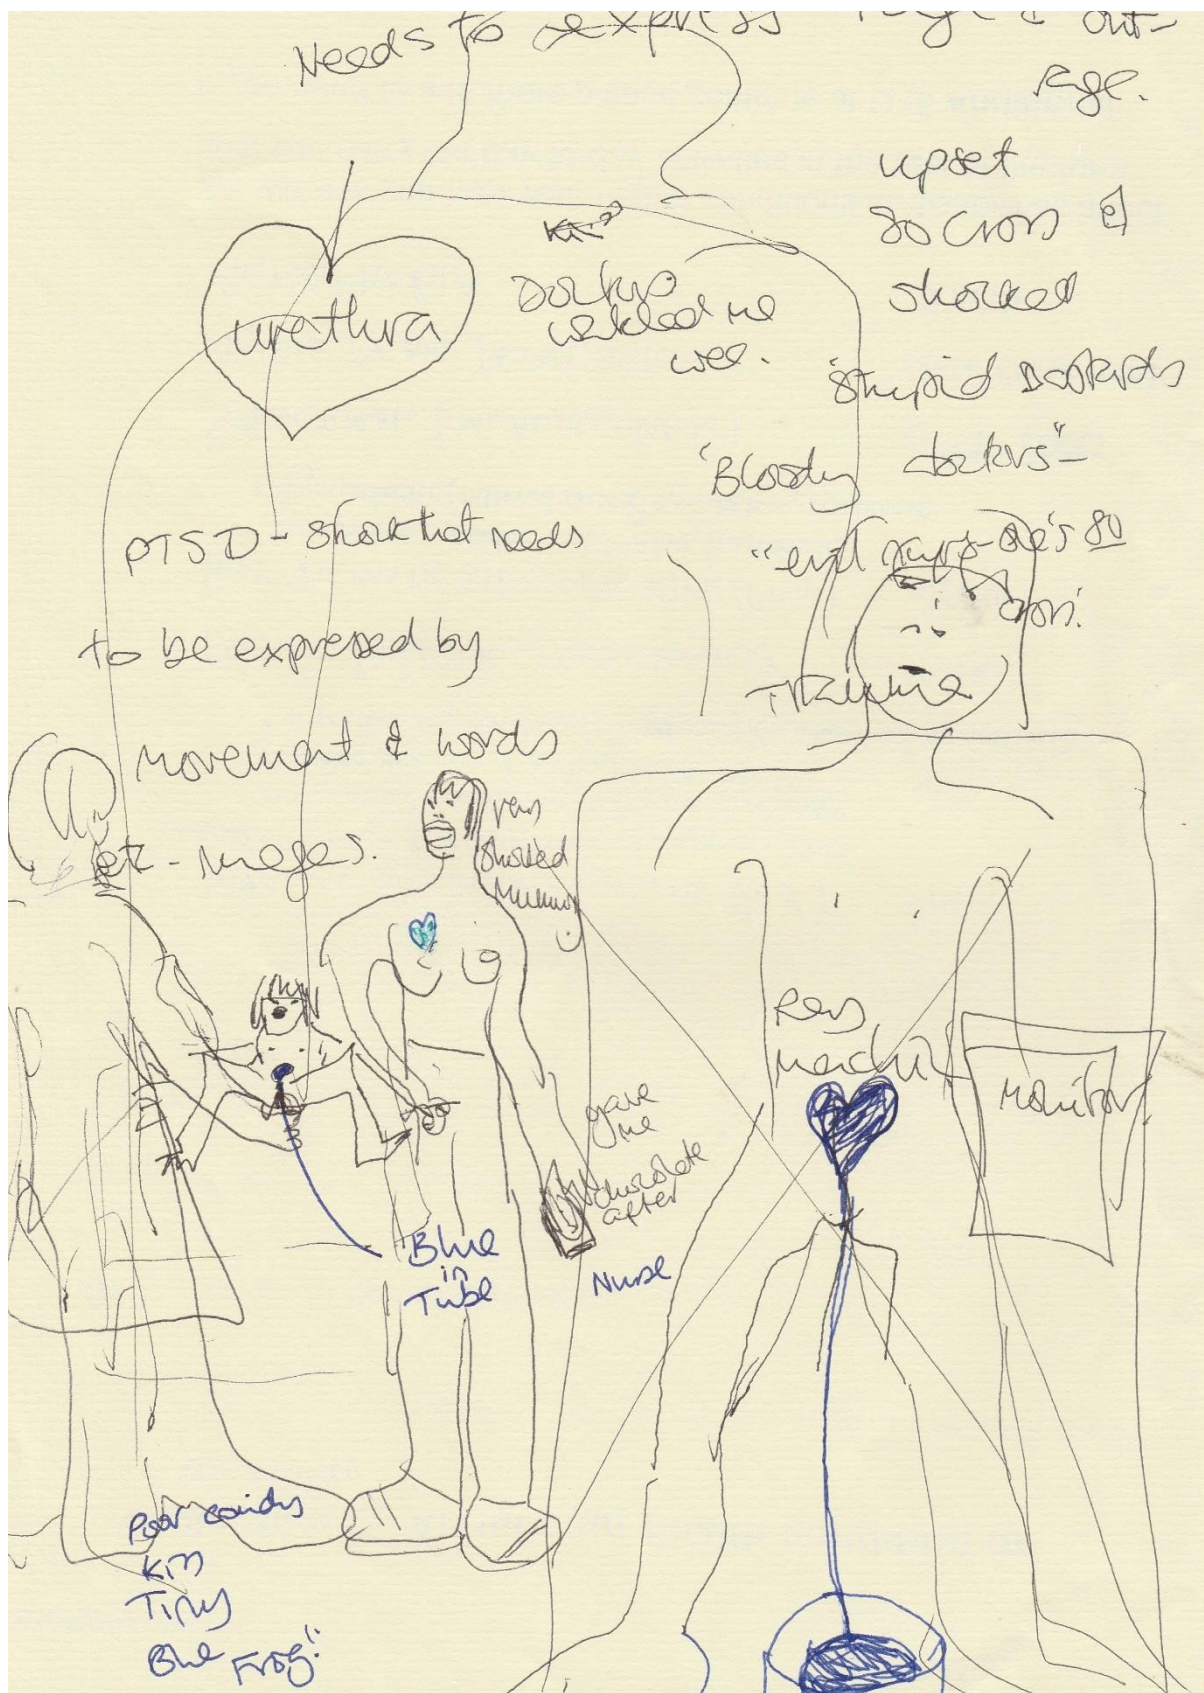 Needs to express
out-
rage.
upset
so cross
shocked
urethra
Doctors
me
wee.
"stupid Bastards
"Bloody doctors"-
"evil
PTSD - shock that needs
to be expressed by
movement & words
etc - images.
Trauma
very
shocked
Mummy
Machine
Monitor
gave
me
chocolate
after
Nurse
Blue
in
Tube
Poor
Kim
Tiny
Blue Frog!"